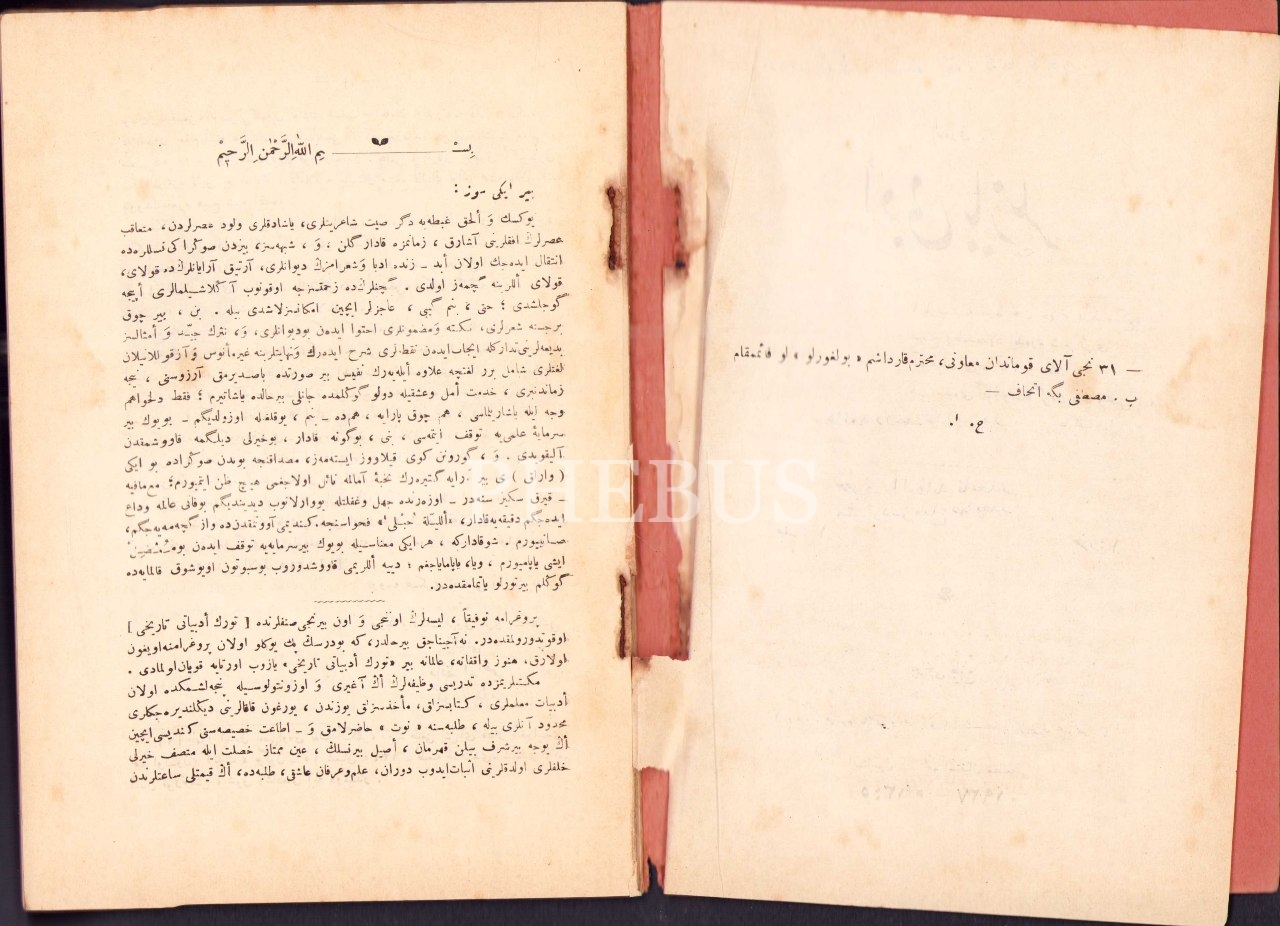 — ٣١ نجی آلای قوماندان معاونی، محترم قارداشم « بولغورلو » لو قائممقام
ب . مصطفی بگه اتحاف —
ح. ا.
بِسْــــــمِ اللهِ الرَّحْمٰنِ الرَّحِيْمْ
بیر ایکی سوز :
یوکسك وَ ألحق غبطه‌یه دگر صیت شاعرینلری، یاشادقلری ولود عصرلردن، متعاقب
عصرلرڭ افقلرینی آشارق ، زمانمزه قادار گلن ، وَ ، شبهه‌سز، بیزدن صوڭراکی نسللره‌ده
انتقال ایده‌جك اولان أبد ــ زنده ادبا وَشعرامزڭ دیوانلری، آرتیق آرایانلرڭ‌ده قولای،
قولای أللرینه گچمه‌ز اولدی . گچنلرڭ‌ده زحمتسزجه اوقونوب آڭلاشیلمالری أییجه
گوجلشدی ؛ حتی ، بنم گبی ، عاجزلر ایچین امکانسزلاشدی بیله . بن ، بیر چوق
برجسته شعرلری، نکته وَمضمونلری احتوا ایدەن بودیوانلری، وَ، نثرڭ جیّد وَ أمثالسز
بدیعه‌لرینی تدارکله ایجاب ایدەن نقطه‌لری شرح ایده‌رك وَنهایتلرینه غیرمأنوس وَآزقوللانیلان
لغتلری شامل برر لغتچه علاوه أیله‌یه‌رك نفیس بیر صورتده باصدیرمق آرزوسنی ، نیجه
زماندنبری ، خدمت أمل وعشقیله دولو گوڭلمده جانلی بیرحالده یاشاتیرم ؛ فقط دلخواهم
وجه ایله باشاریلماسی ، هم چوق پارایه ، هم‌ده ــ بنم ، یوقلغله اوزولدیگم ــ بویوك بیر
سرمایهٔ علمی‌یه توقف ایتمه‌سی ، بنی ، بوگونه قادار ، بوخیرلی دیلگمه قاووشمقدن
آلیقویدی . وَ ، گورونن کوی قیلاووز ایسته‌مه‌ز، مصداقنجه بوندن صوڭراده بو ایکی
( وارلق ) ی بیر آرایه گتیره‌رك نخبهٔ آمالمه نائل اولاجغمی هیچ ظن ایتمیورم؛ مع‌مافیه
ــ قیرق سکیز سنه‌در ــ اوزه‌رنده جهل وغفلتله یووارلانوب دیدیندیگم بوفانی عالمه وداع
ایده‌جگم دقیقه‌یه‌قادار، «أللیلة حبلی» فحواسنجه،کندیمی آووتمقدن‌ده واز گچه‌مه‌یه‌جگم،
صانیورم . شوقادارکه ، هر ایکی معناسیله بویوك بیرسرمایه‌یه توقف ایدەن بو
ایشی یاپامیورم ، ویا، یاپامایاجغم ؛ دییه أللریمی قاووشدوروب بوسبوتون اویوشوق قالمایه‌ده
گوڭلم بیرتورلو یاتمامقده‌در.
پروغرامه توفیقاً ، لیسه‌لرڭ اوننجی وَ اون بیرنجی صنفلرنده [ تورك أدبیاتی تاریخی ]
اوقوتدورولمقده‌در. نه‌آجیناجق بیرحالدر،که بودرسڭ پك یوکلو اولان پروغرامنه‌اویغون
اولارق، هنوز واقفانه، عالمانه بیر «تورك أدبیاتی تاریخی» یازوب اورتایه قویان‌اولمادی .
مکتبلریمزده تدریسی وظیفه‌لرڭ أڭ آغیری وَ اوزونتولوسیله پنجه‌لشمکده اولان
أدبیات معلملری ، کتابسزلق، مأخذسزلق یوزندن ، یورغون قافالرینی دیڭلندیره‌جکلری
محدود آنلری بیله ، طلبه‌سنه «نوت» حاضرلامق وَ ــ اطاعت خصیصه‌سنی کندیسی‌ایچین
أڭ یوجه بیرشرف بیلن قهرمان ، أصیل بیرنسلڭ ، عین ممتاز خصلت ایله متصف خیرلی
خلفلری اولدقلرینی اثبات‌ایدوب دوران، علم‌وعرفان عاشقی، طلبه‌ده، أڭ قیمتلی ساعتلرندن
THEBUS